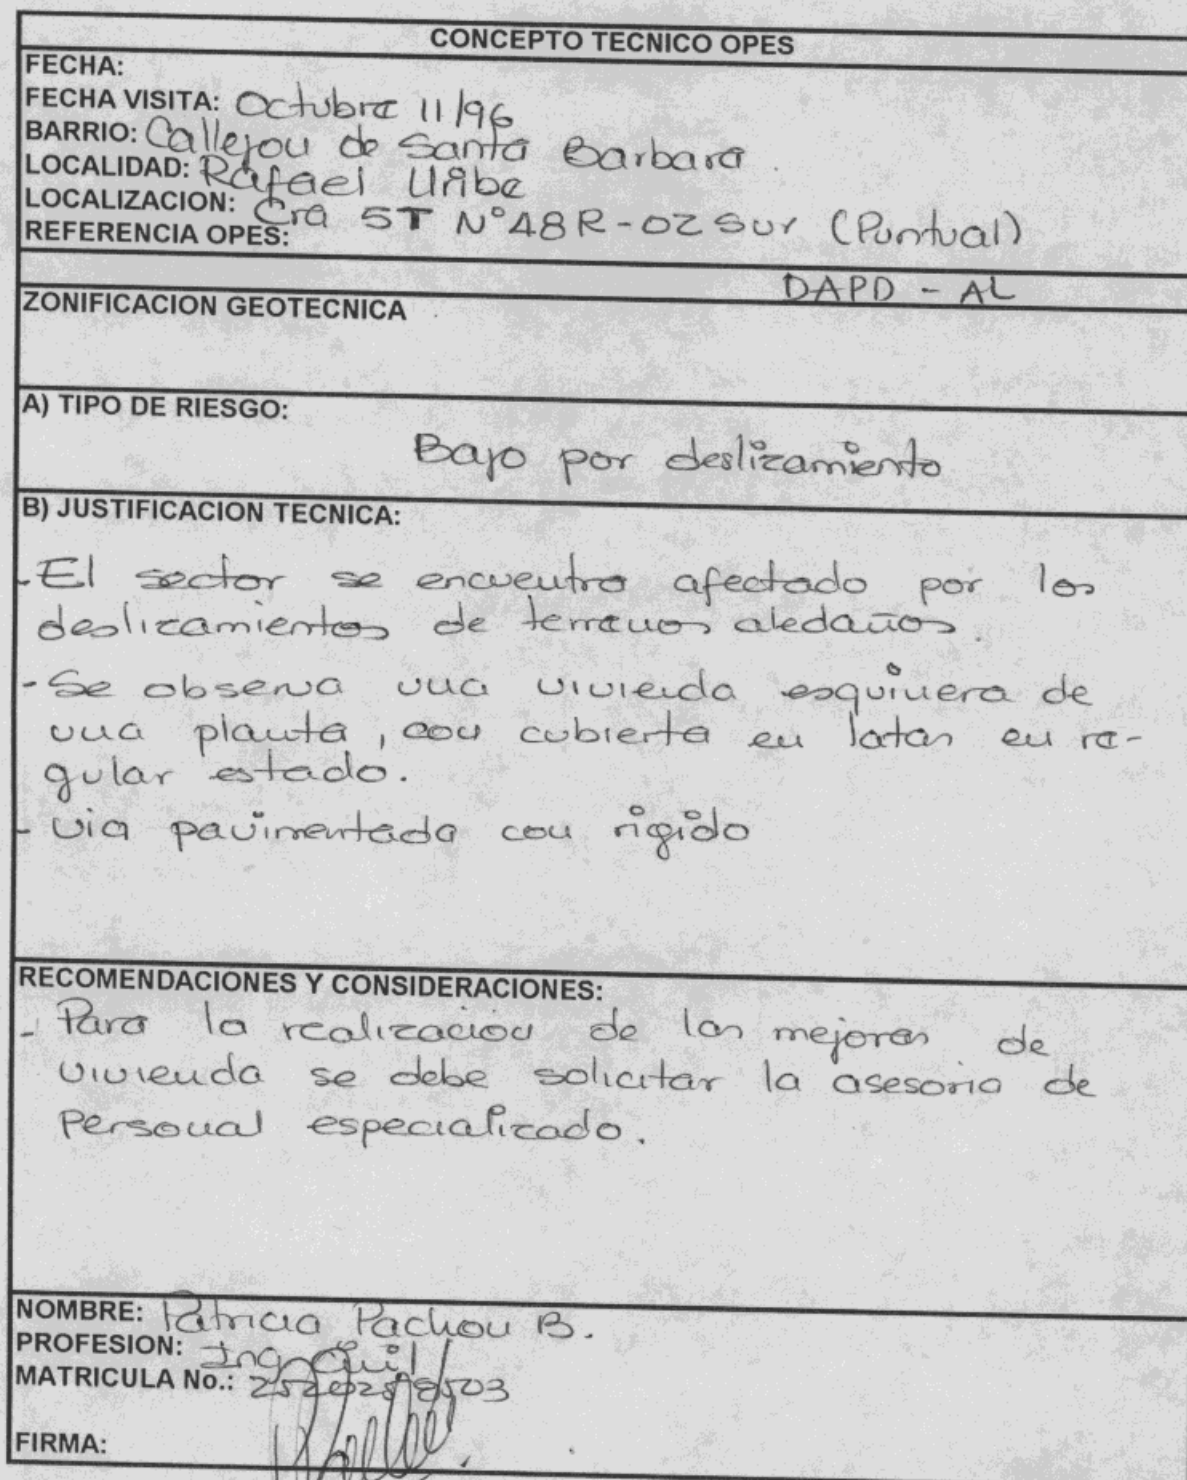 CONCEPTO TECNICO OPES
FECHA:
FECHA VISITA: Octubre 11/96
BARRIO: Callejon de Santa Barbara
LOCALIDAD: Rafael Uribe
LOCALIZACION: Cra 5T N°48R-02 Sur (Puntual)
REFERENCIA OPES:
DAPD - AL
ZONIFICACION GEOTECNICA
A) TIPO DE RIESGO:
Bajo por deslizamiento
B) JUSTIFICACION TECNICA:
- El sector se encuentra afectado por los
deslizamientos de terrenos aledaños.
- Se observa una vivienda esquinera de
una planta, con cubierta en latas en re-
gular estado.
- via pavimentada con rigido
RECOMENDACIONES Y CONSIDERACIONES:
- Para la realización de las mejoras de
vivienda se debe solicitar la asesoria de
Personal especializado.
NOMBRE: Patricia Pachon B.
PROFESION: Ing Civil
MATRICULA No.:
FIRMA: